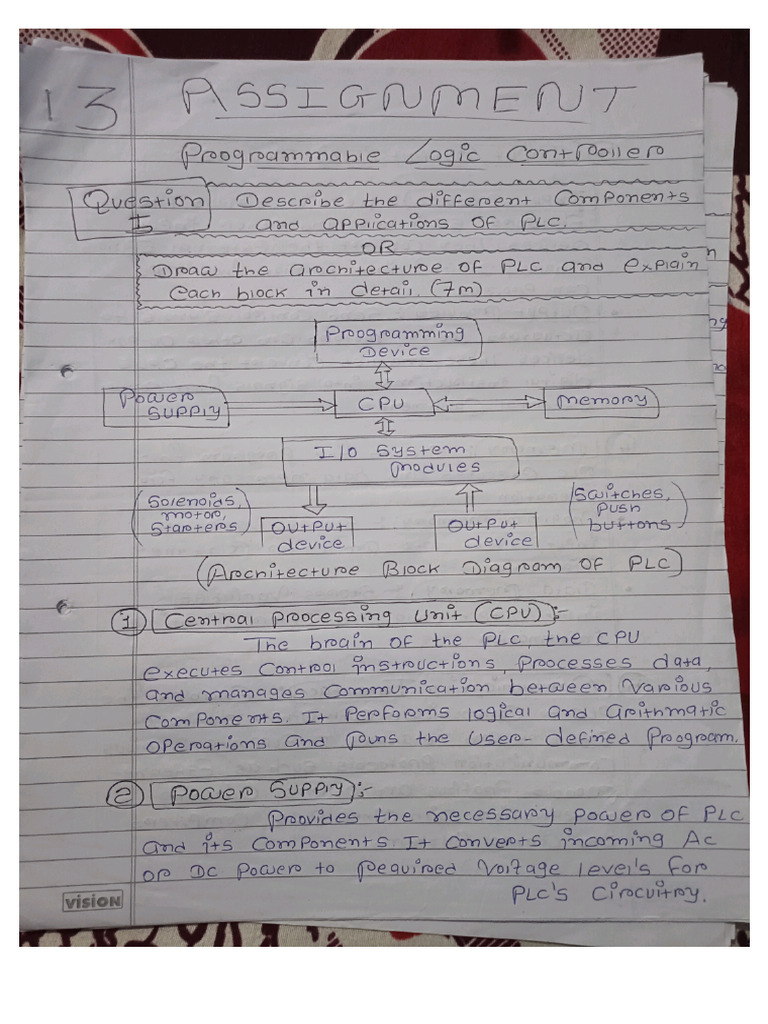 13 ASSIGNMENT
Programmable Logic Controller
Question 1 Describe the different Components
and applications of PLC.
OR
Draw the architecture of PLC and explain
each block in detail. (7m)
Programming
Device
Power
SUPPLY
CPU
Memory
I/O System
modules
(Solenoids,
motor,
Starters)
Output
device
Output
device
(Switches,
push
buttons)
(Architecture Block Diagram of PLC)
1) Central Processing Unit (CPU):-
The brain of the PLC, the CPU
executes control instructions, processes data,
and manages communication between various
components. It performs logical and arithmatic
operations and runs the user-defined program.
2) Power Supply:-
Provides the necessary power of PLC
and its components. It converts incoming AC
or DC power to required voltage level's for
PLC's circuitry.
vision